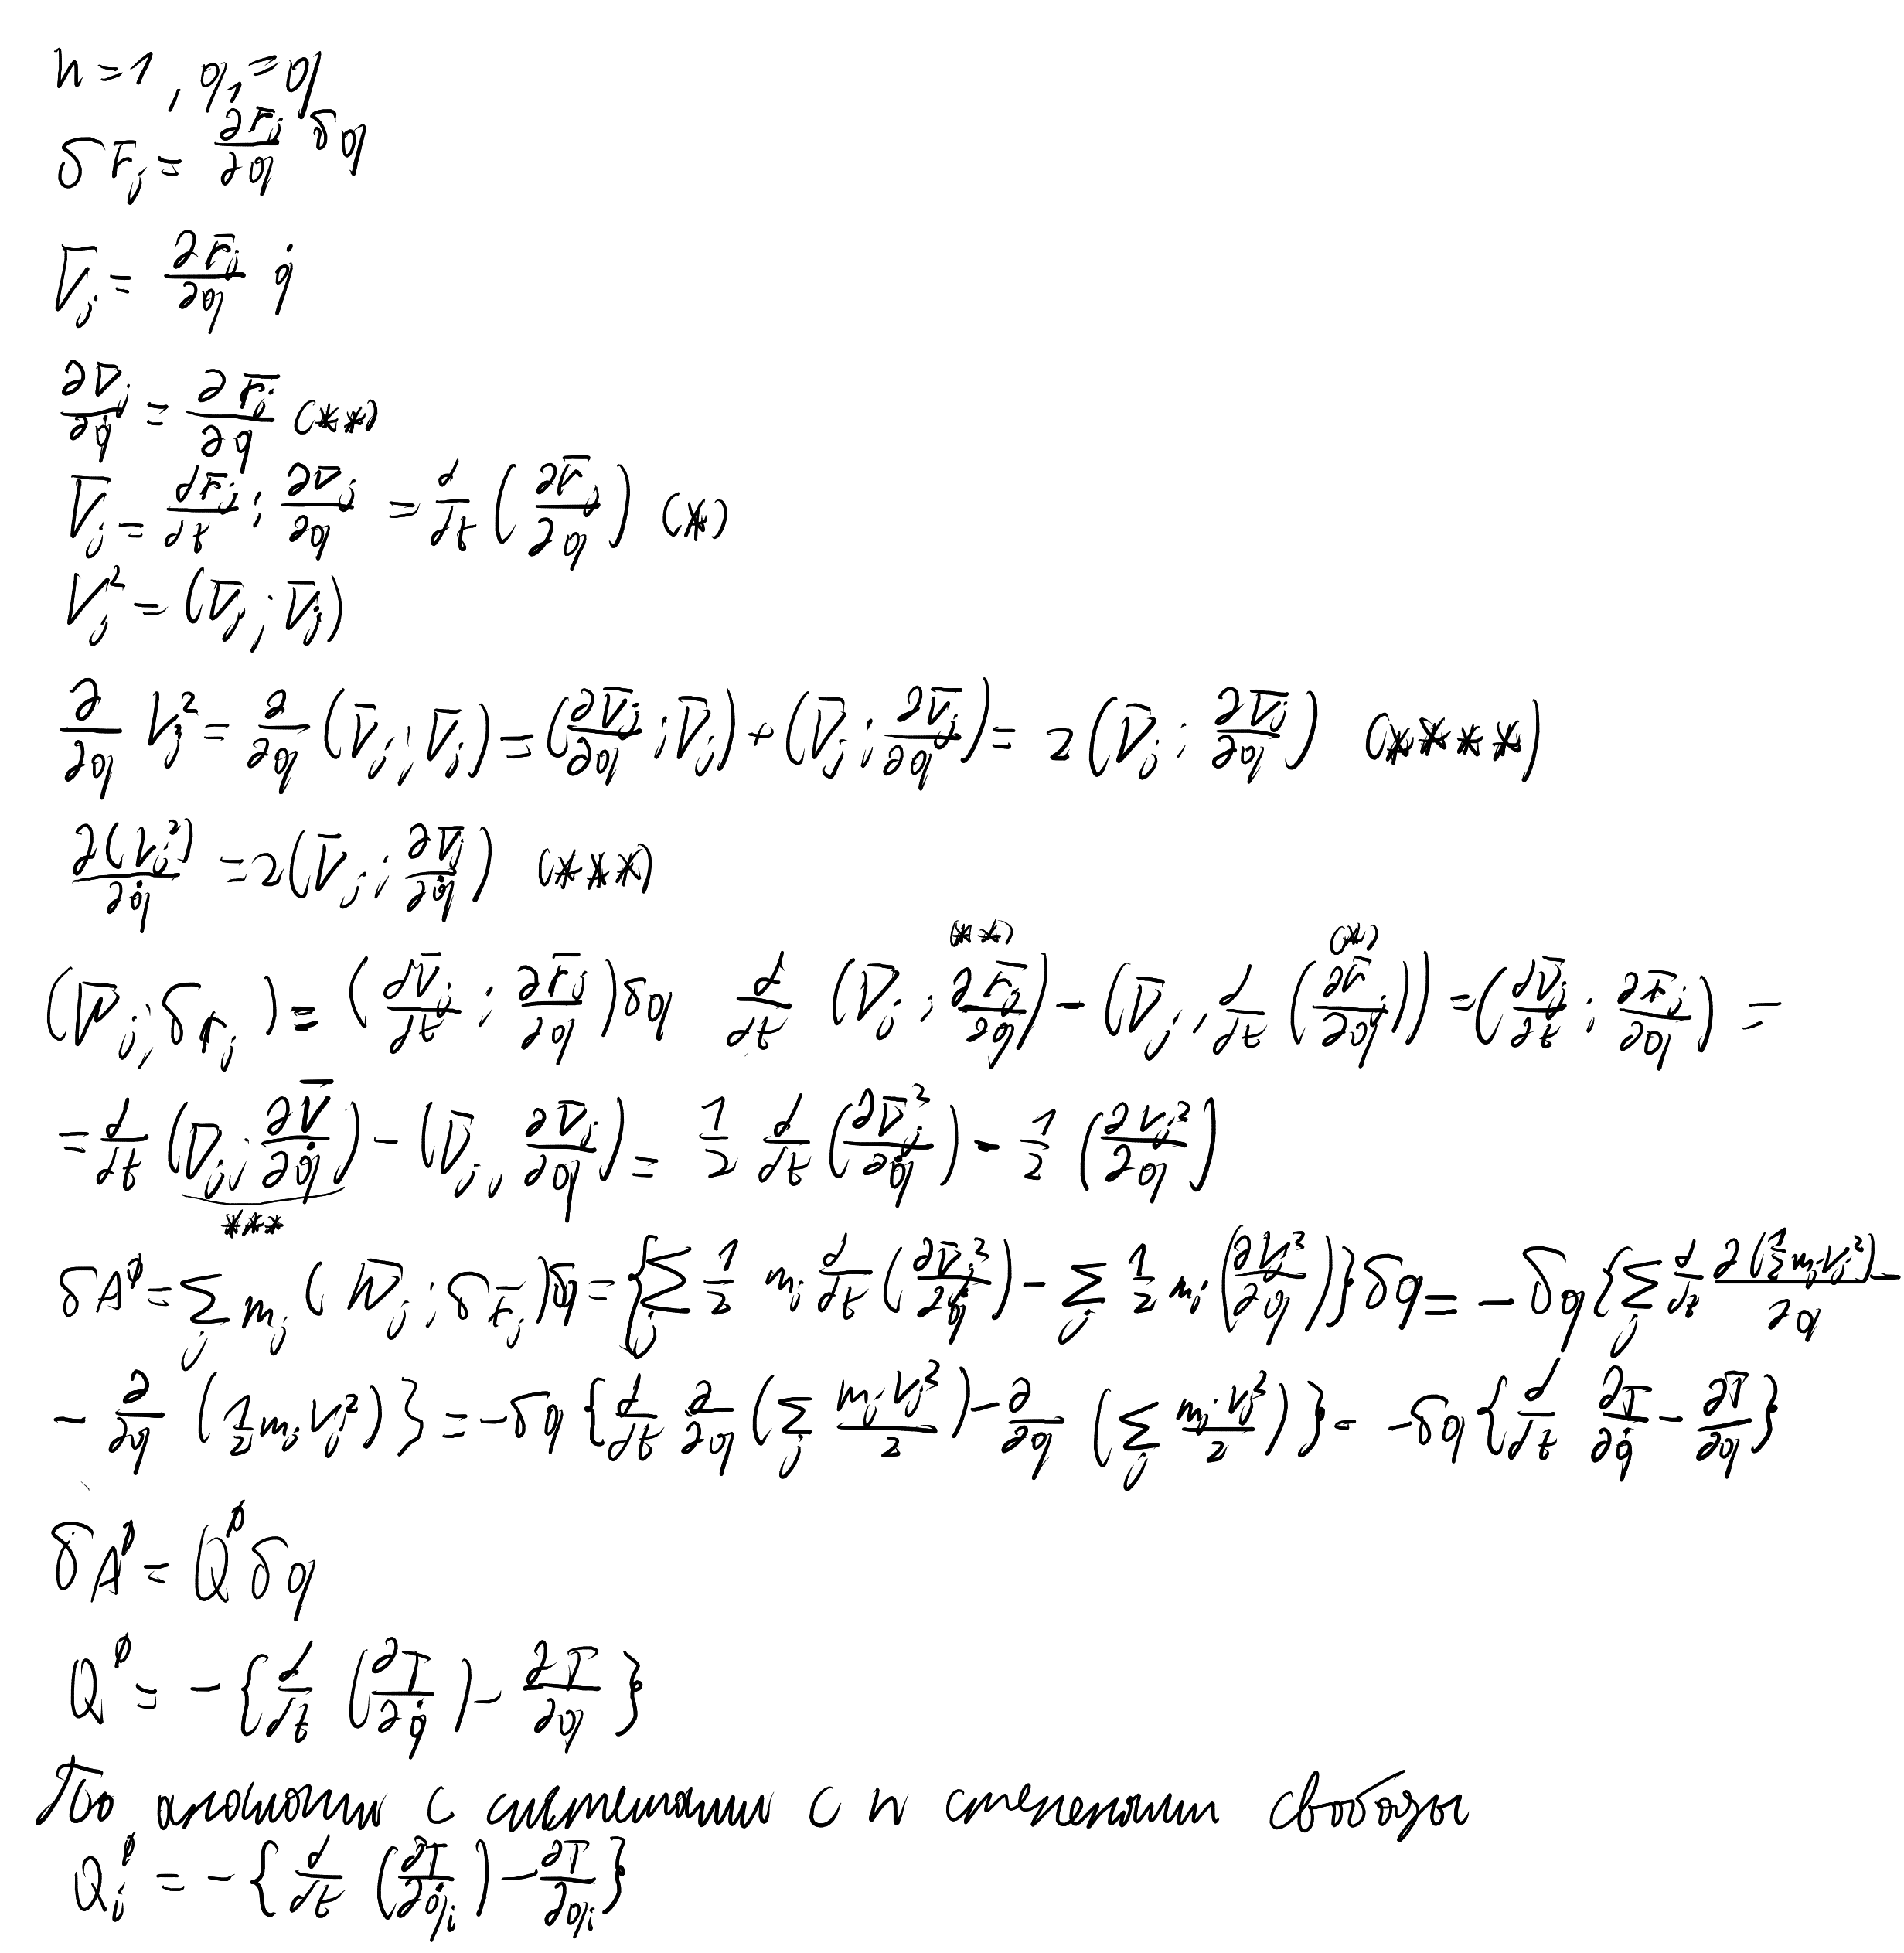 n=1, q₁=q
δr̄ⱼ = ∂r̄ⱼ/∂q δq
V̄ⱼ = ∂r̄ⱼ/∂q q̇
∂V̄ⱼ/∂q̇ = ∂r̄ⱼ/∂q (**)
V̄ⱼ = dr̄ⱼ/dt ; ∂V̄ⱼ/∂q = d/dt (∂r̄ⱼ/∂q) (*)
Vⱼ² = (V̄ⱼ; V̄ⱼ)
∂/∂q Vⱼ² = ∂/∂q (V̄ⱼ; V̄ⱼ) = (∂V̄ⱼ/∂q ; V̄ⱼ) + (V̄ⱼ ; ∂V̄ⱼ/∂q) = 2 (V̄ⱼ ; ∂V̄ⱼ/∂q) (****)
∂(Vⱼ²)/∂q̇ = 2(V̄ⱼ ; ∂V̄ⱼ/∂q̇) (***)
(**) (*)
(W̄ⱼ; δr̄ⱼ) = (dV̄ⱼ/dt ; ∂r̄ⱼ/∂q)δq d/dt (V̄ⱼ ; ∂r̄ⱼ/∂q) − (V̄ⱼ ; d/dt (∂r̄ⱼ/∂q)) = (dV̄ⱼ/dt ; ∂r̄ⱼ/∂q) =
= d/dt (V̄ⱼ ; ∂V̄/∂q̇) − (V̄ⱼ , ∂V̄ⱼ/∂q) = 1/2 d/dt (∂V̄ⱼ²/∂q̇) − 1/2 (∂Vⱼ²/∂q)
***
δA^ϕ = ∑ⱼ mⱼ (W̄ⱼ ; δr̄ⱼ)δq = {∑ⱼ 1/2 mⱼ d/dt (∂V̄ⱼ²/∂q̇) − ∑ⱼ 1/2 mⱼ (∂Vⱼ²/∂q)} δq = −δq {∑ⱼ d/dt ∂(1/2 mⱼVⱼ²)/∂q −
− ∂/∂q (1/2 mⱼVⱼ²)} = −δq {d/dt ∂/∂q (∑ⱼ mⱼVⱼ²/2) − ∂/∂q (∑ⱼ mⱼVⱼ²/2)} = −δq {d/dt ∂T/∂q̇ − ∂T/∂q}
δA^ϕ = Q^ϕ δq
Q^ϕ = −{d/dt (∂T/∂q̇) − ∂T/∂q}
По аналогии с системами с n степенями свободы
Qᵢ^ϕ = −{d/dt (∂T/∂q̇ᵢ) − ∂T/∂qᵢ}